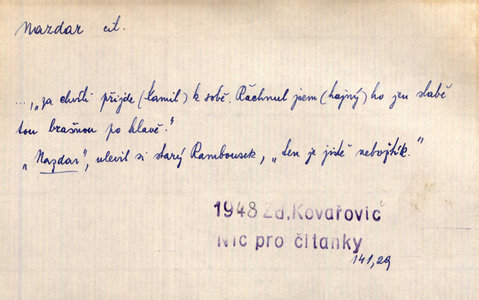 Nazdar cit.
..., „za chvíli přijde (Kamil) k sobě. Ráchnul jsem (hajný) ho jen slabě
tou brašnou po hlavě."
„Nazdar", ulevil si starý Rambousek, „ten je jistě nebožtík."
1948 Zd. Kovařovič
Nic pro čítanky
141,29